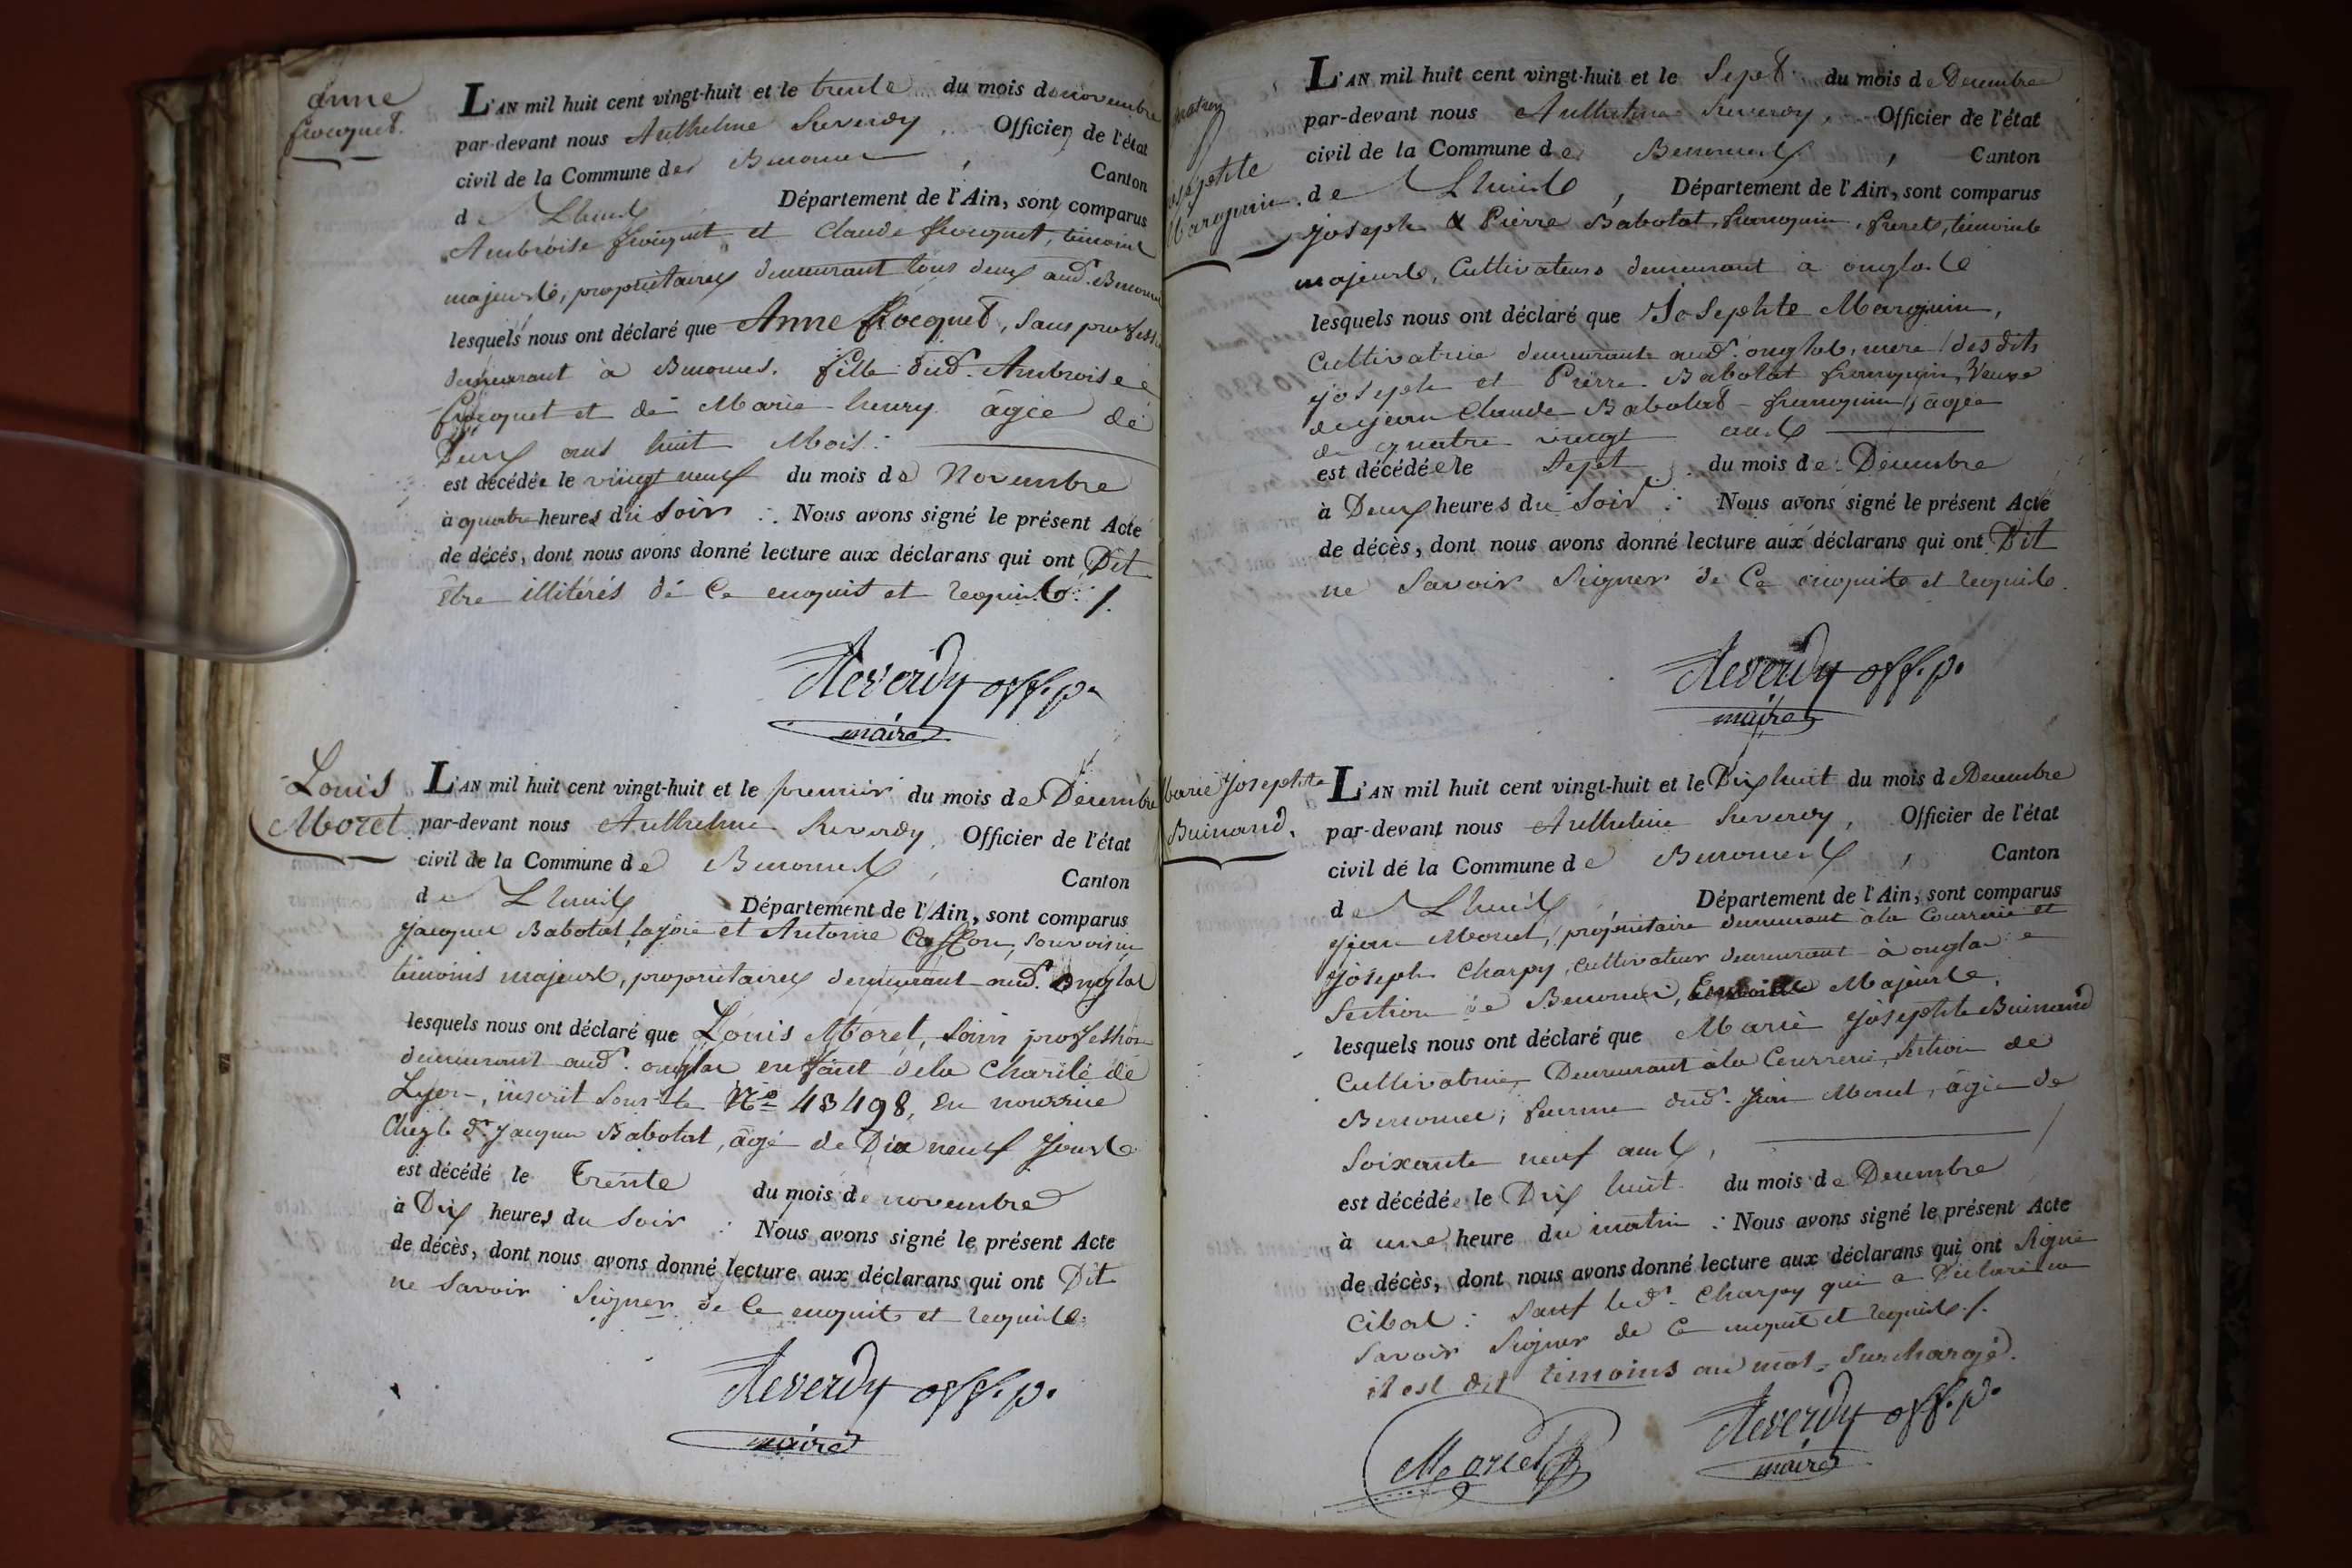 anne
frocquet.
L'AN mil huit cent vingt-huit et le trente du mois de novembre
par-devant nous Anthelme Reverdy, Officier de l'état
civil de la Commune de Benonces, Canton
de Lhuis Département de l'Ain, sont comparus
Ambroise frocquet et Claude frocquet, témoins
majeurs, propriétaires demeurant tous deux aud. Benonces
lesquels nous ont déclaré que Anne frocquet, sans profession
demeurant à Benonces. fille dud. Ambroise
frocquet et de Marie henry âgée de
Deux ans huit Mois.
est décédée le vingt neuf du mois de Novembre
à quatre heures du soir . Nous avons signé le présent Acte
de décès, dont nous avons donné lecture aux déclarans qui ont Dit
être illitérés de ce enquis et requis ./.
Reverdy off. p.
maire
Louis
Moret
L'AN mil huit cent vingt-huit et le premier du mois de Décembre
par-devant nous Anthelme Reverdy, Officier de l'état
civil de la Commune de Benonces, Canton
de Lhuis Département de l'Ain, sont comparus
Jacques Babolat lajoie et Antoine son voisin
témoins majeurs, propriétaires demeurant aud. onglas
lesquels nous ont déclaré que Louis Moret, sans profession
demeurant aud. onglas enfant de la Charité de
Lyon, inscrit sous le N° 43498, en nourrice
Chez le dt Jacques Babolat, âgé de Dix neuf Jours
est décédé le Trente du mois de novembre
à Dix heures du soir : Nous avons signé le présent Acte
de décès, dont nous avons donné lecture aux déclarans qui ont Dit
ne savoir signer de ce enquis et requis.
Reverdy off. p.
maire
Josephte
Marguin.
L'AN mil huit cent vingt-huit et le Sept du mois de Décembre
par-devant nous Anthelme Reverdy, Officier de l'état
civil de la Commune de Benonces, Canton
de Lhuis, Département de l'Ain, sont comparus
Joseph & Pierre Babolat, franquin, freres, témoins
majeurs, Cultivateurs demeurant à onglas
lesquels nous ont déclaré que Josephte Marguin,
Cultivatrice demeurante aud. onglas, mere des dits
Joseph et Pierre Babolat franquin, Veuve
de jean Claude Babolat franquin, âgée
de quatre vingt ans
est décédée le sept du mois de Décembre
à Deux heures du Soir : Nous avons signé le présent Acte
de décès, dont nous avons donné lecture aux déclarans qui ont Dit
ne Savoir Signer de Ce enquis et requis.
Reverdy off. p.
maire
Marie Josephte
Buinand.
L'AN mil huit cent vingt-huit et le Dix huit du mois de Décembre
par-devant nous Anthelme Reverdy, Officier de l'état
civil de la Commune de Benonces, Canton
de Lhuis, Département de l'Ain, sont comparus
Jean Moret, propriétaire demeurant à la Courrerie et
Joseph Charpy, cultivateur demeurant à onglas
Section de Benonces, Majeurs,
lesquels nous ont déclaré que Marie Josephte Buinand
Cultivatrice, Demeurant à la Courrerie, Section de
Benonces; femme dud. Jean Moret, âgée de
Soixante neuf ans,
est décédée le Dix huit du mois de Décembre
à une heure du matin : Nous avons signé le présent Acte
de décès, dont nous avons donné lecture aux déclarans qui ont Signé
Cibas : sauf led. Charpy qui a Déclaré ne
Savoir Signer de Ce enquis et requis ./.
il est dit témoins au mot surchargé.
Moret
Reverdy off. p.
maire